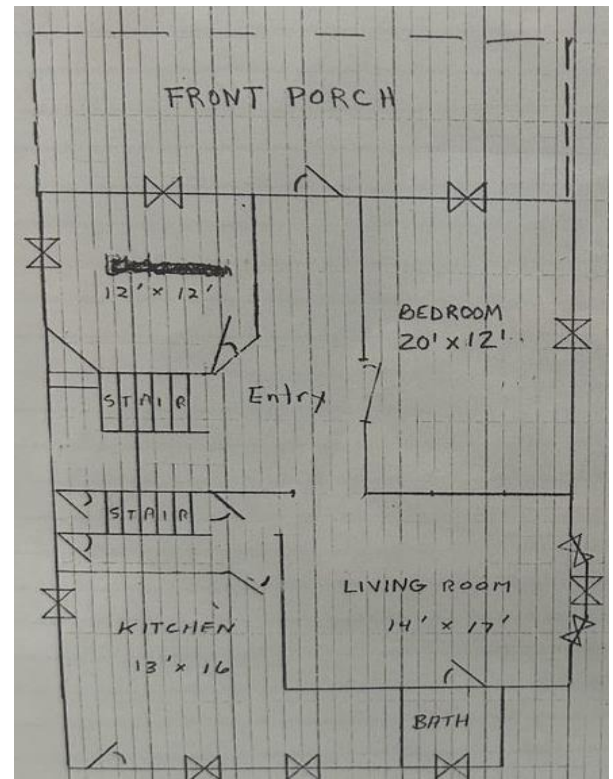 FRONT PORCH
12' x 12'
BEDROOM
20' x 12'
STAIR
Entry
STAIR
LIVING ROOM
14' x 17'
KITCHEN
13' x 16
BATH